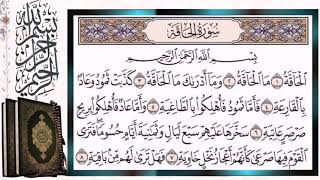 بسم الله الرحمن الرحيم
سُورَةُ الْحَاقَّةِ
بِسْمِ اللَّهِ الرَّحْمَٰنِ الرَّحِيمِ
الْحَاقَّةُ ١ مَا الْحَاقَّةُ ٢ وَمَا أَدْرَاكَ مَا الْحَاقَّةُ ٣ كَذَّبَتْ ثَمُودُ وَعَادٌ
بِالْقَارِعَةِ ٤ فَأَمَّا ثَمُودُ فَأُهْلِكُوا بِالطَّاغِيَةِ ٥ وَأَمَّا عَادٌ فَأُهْلِكُوا بِرِيحٍ
صَرْصَرٍ عَاتِيَةٍ ٦ سَخَّرَهَا عَلَيْهِمْ سَبْعَ لَيَالٍ وَثَمَانِيَةَ أَيَّامٍ حُسُومًا فَتَرَى
الْقَوْمَ فِيهَا صَرْعَىٰ كَأَنَّهُمْ أَعْجَازُ نَخْلٍ خَاوِيَةٍ ٧ فَهَلْ تَرَىٰ لَهُمْ مِنْ بَاقِيَةٍ ٨